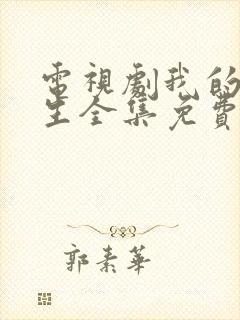 電視劇我的
生全集免費
郭素華